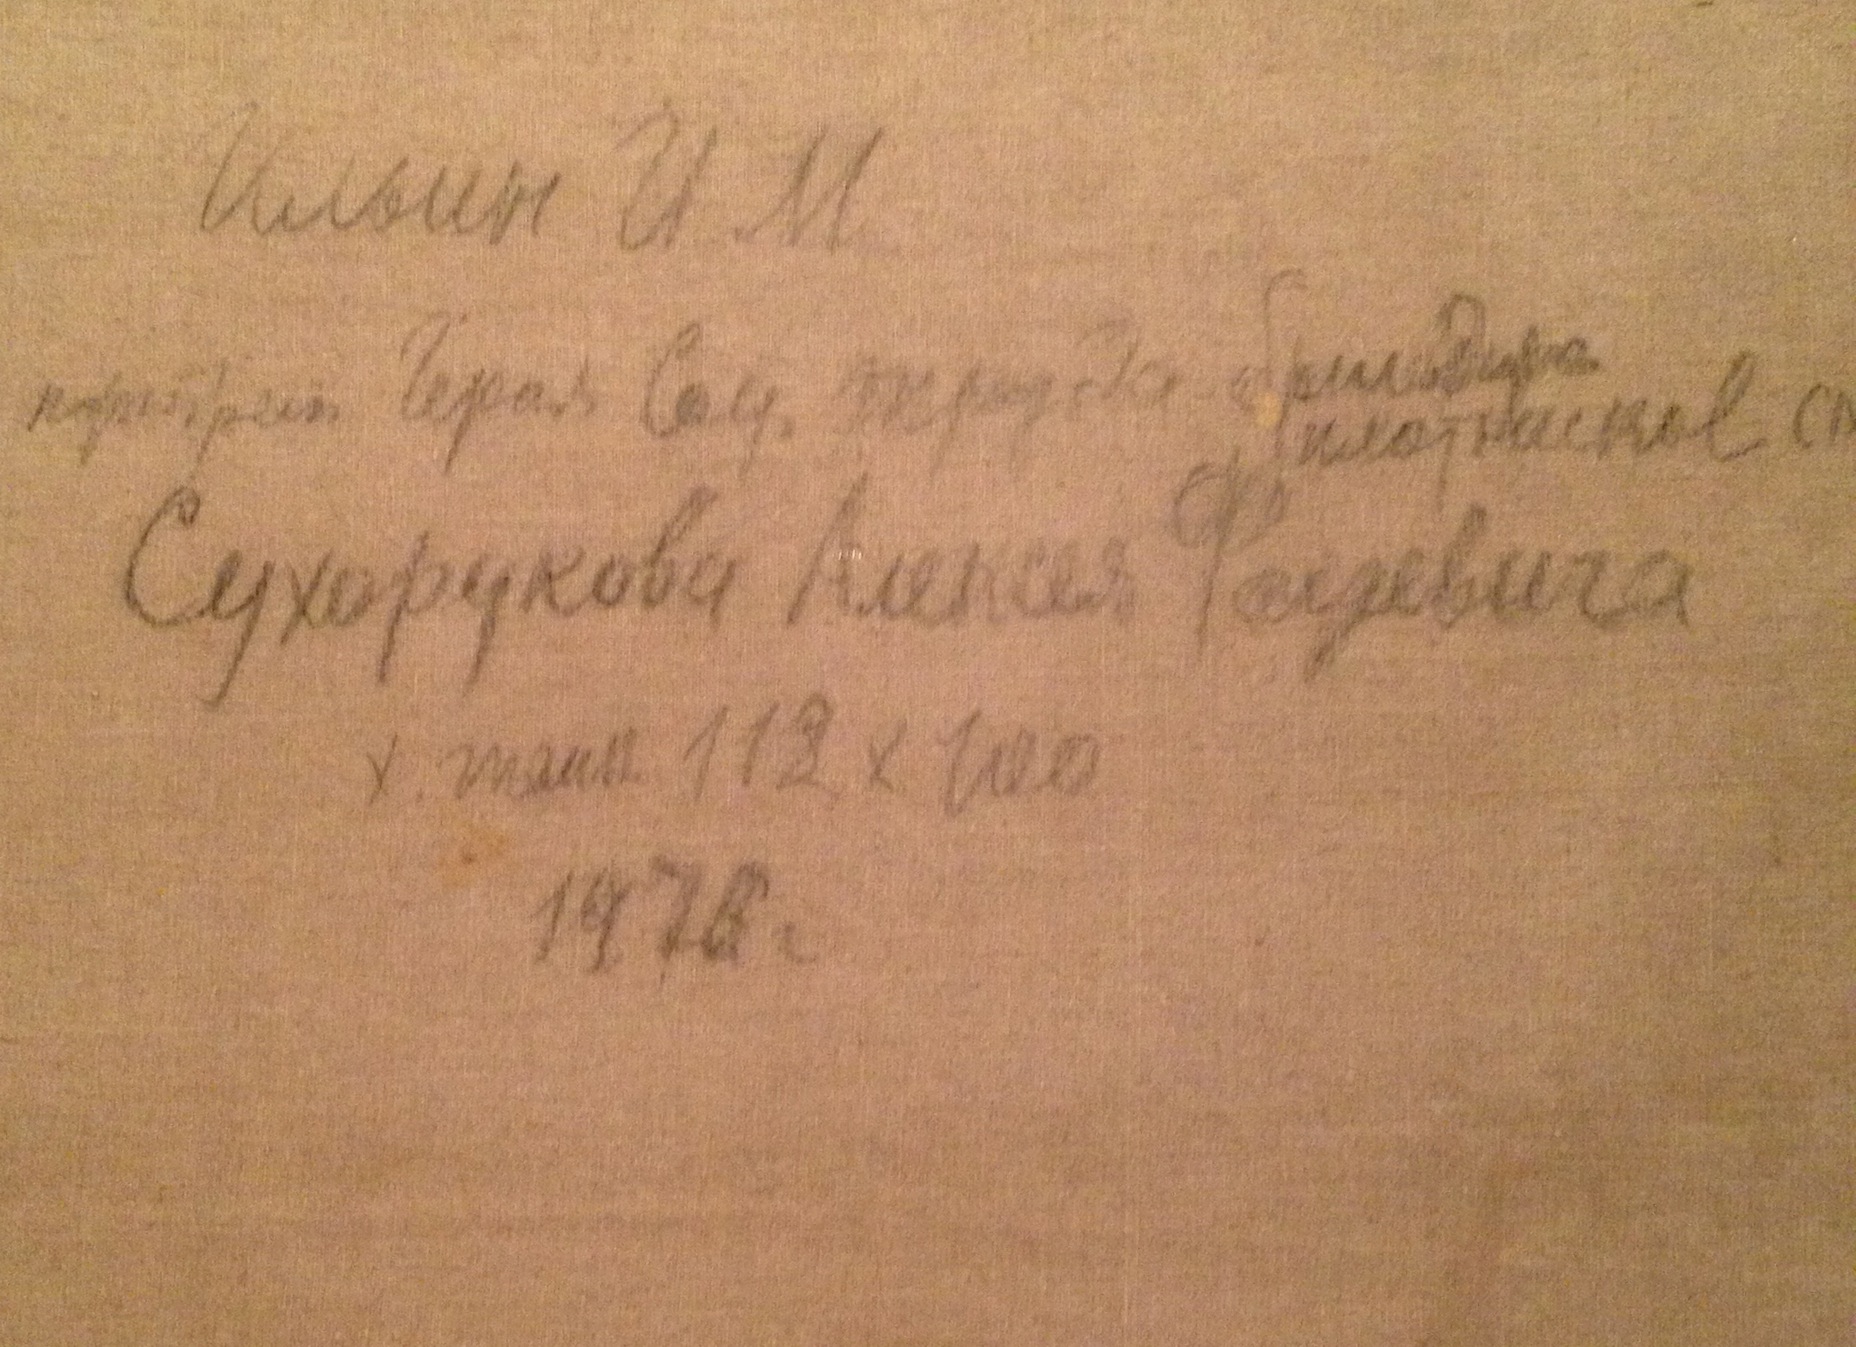 Ильин И М
портрет Героя Соц. труда бригадира
плотников
Сухорукова Алексея Фадеевича
х. темп 112 х 100
1978г